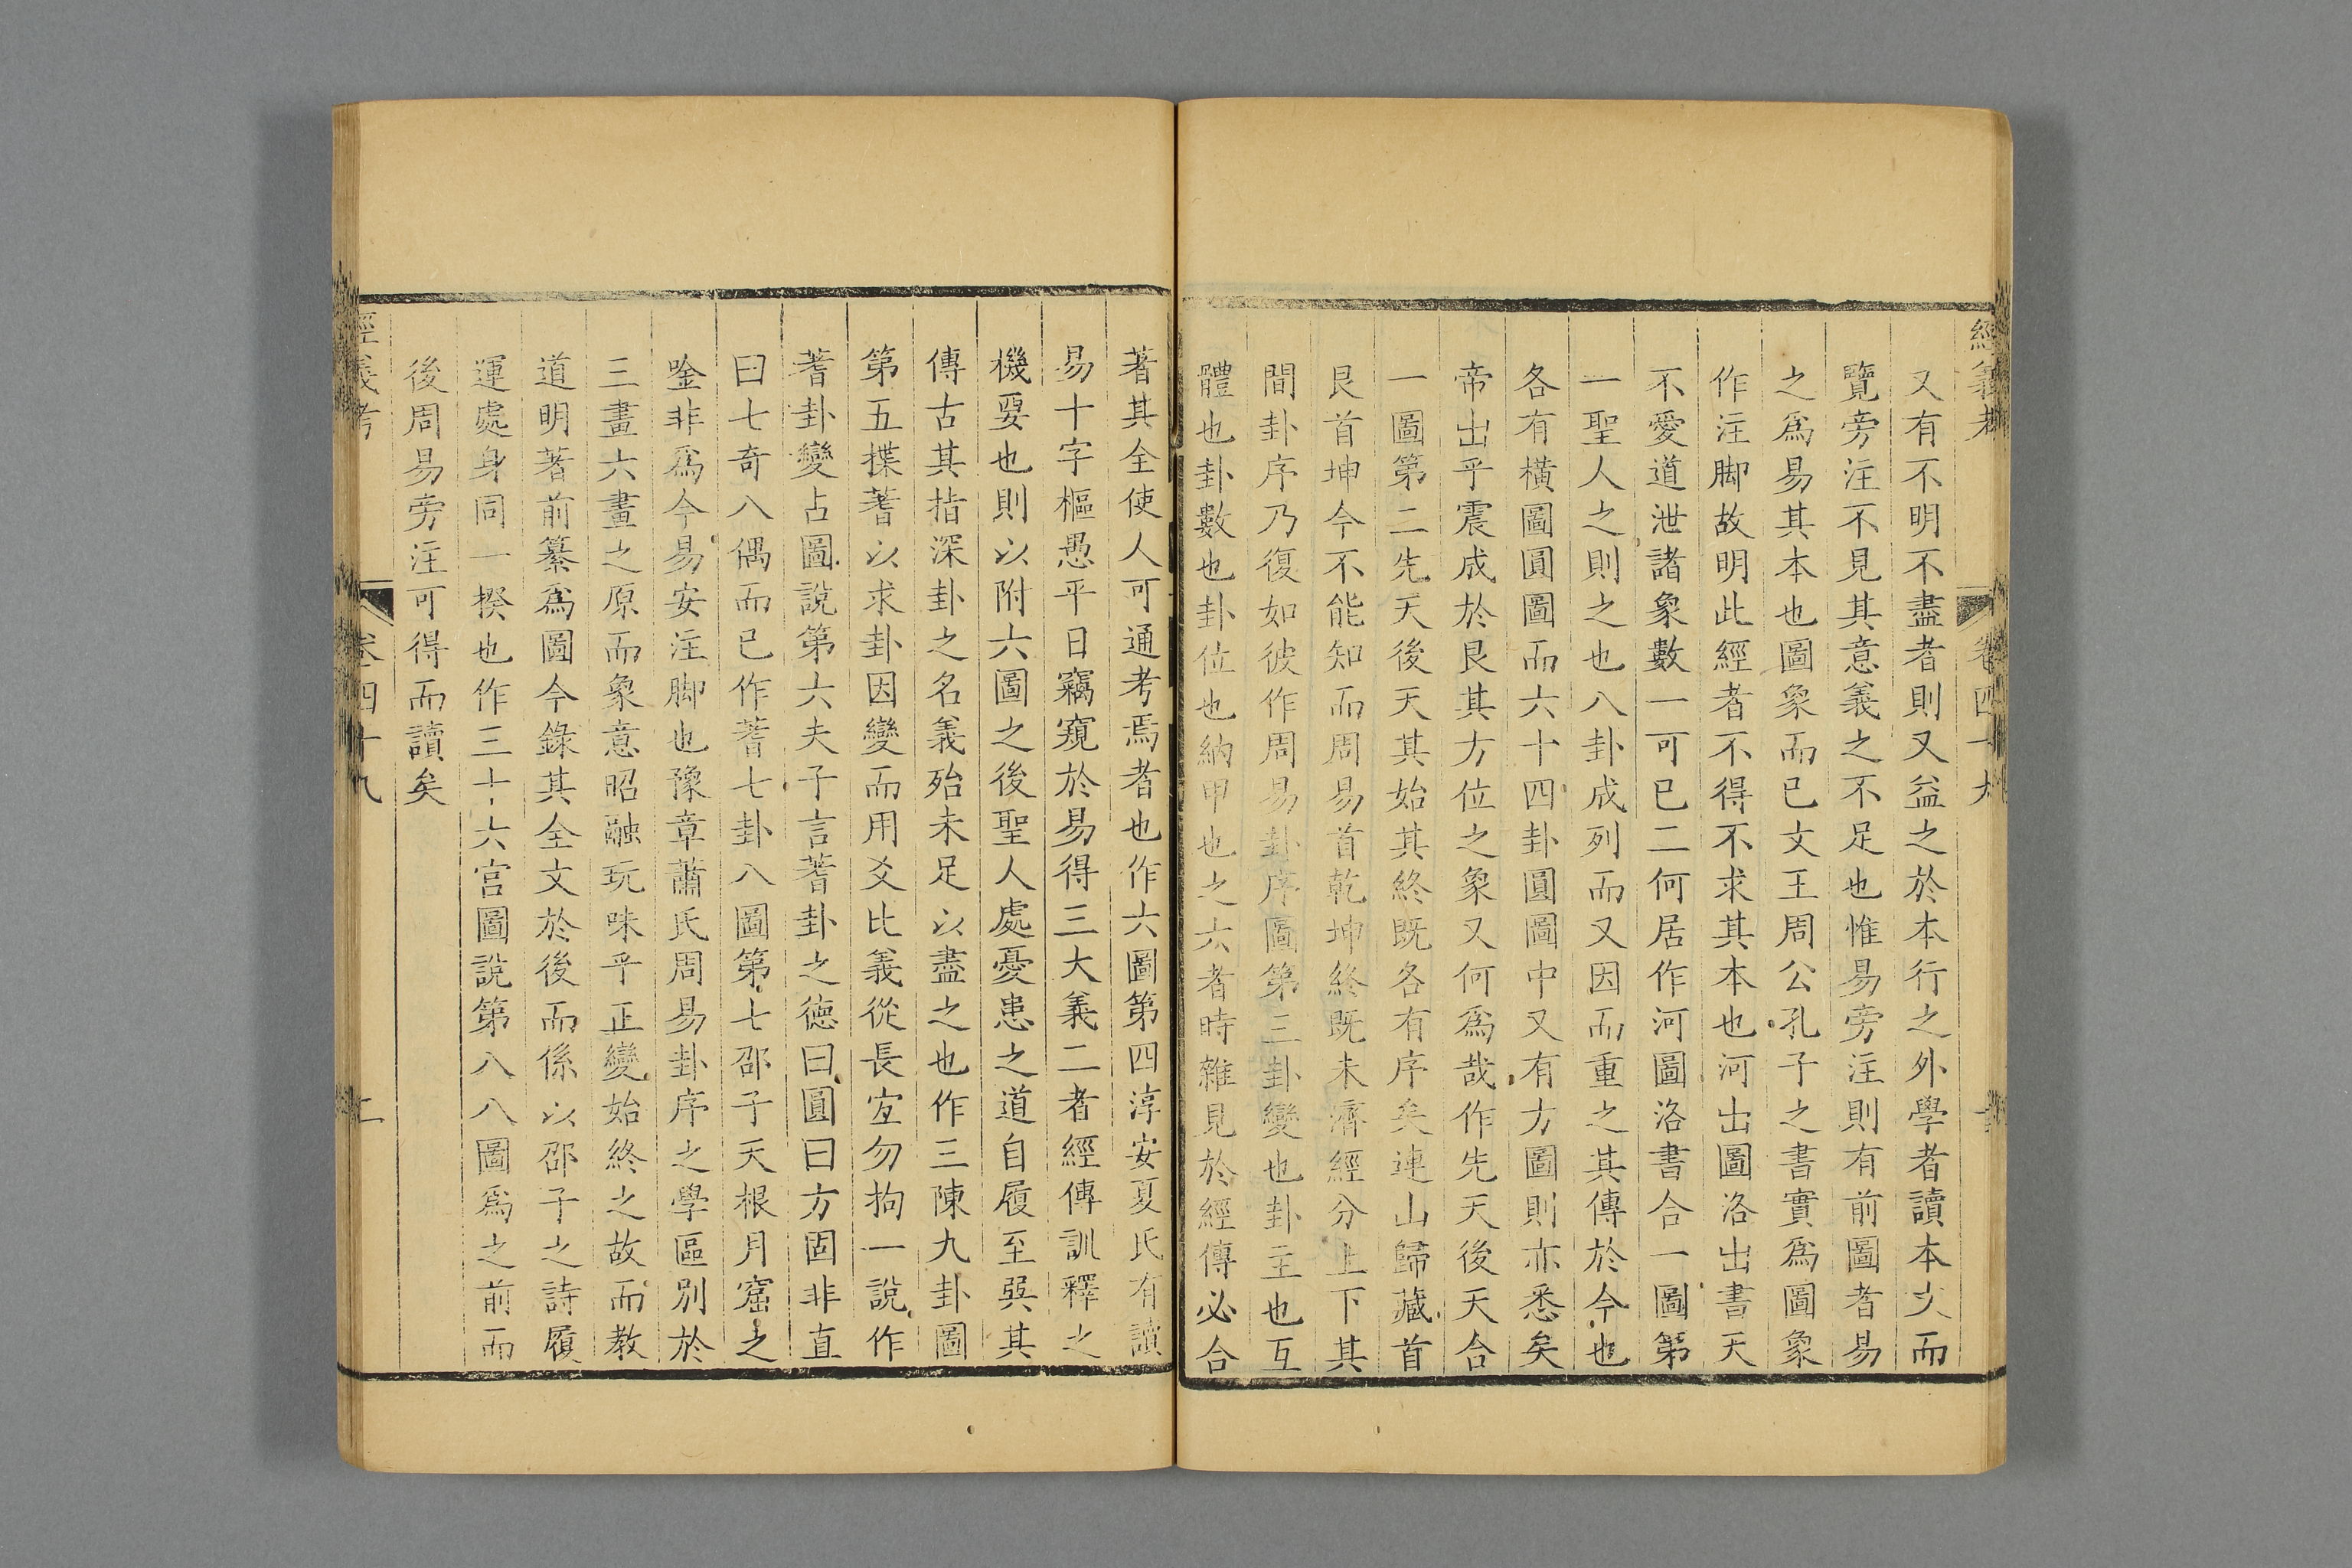 經義考 卷四十九
又有不明不盡者則又益之於本行之外學者讀本文而
覽旁注不見其意義之不足也惟易旁注則有前圖者易
之爲易其本也圖象而已文王周公孔子之書實爲圖象
作注脚故明此經者不得不求其本也河出圖洛出書天
不愛道泄諸象數一可已二何居作河圖洛書合一圖第
一聖人之則之也八卦成列而又因而重之其傳於今也
各有橫圖圓圖而六十四卦圓圖中又有方圖則亦悉矣
帝出乎震成於艮其方位之象又何爲哉作先天後天合
一圖第二先天後天其始其終既各有序矣連山歸藏首
艮首坤今不能知而周易首乾坤終既未濟經分上下其
間卦序乃復如彼作周易卦序圖第三卦變也卦主也互
體也卦數也卦位也納甲也之六者時雜見於經傳必合
著其全使人可通考焉者也作六圖第四淳安夏氏有讀
易十字樞愚平日竊窺於易得三大義二者經傳訓釋之
機要也則以附六圖之後聖人處憂患之道自履至巽其
傳古其指深卦之名義殆未足以盡之也作三陳九卦圖
第五揲蓍以求卦因變而用爻比義從長宜勿拘一說作
蓍卦變占圖說第六夫子言蓍卦之德曰圓曰方固非直
曰七奇八偶而已作蓍七卦八圖第七邵子天根月窟之
唫非爲今易安注脚也豫章蕭氏周易卦序之學區別於
三畫六畫之原而象意昭融玩味乎正變始終之故而教
道明著前纂爲圖今錄其全文於後而係以邵子之詩履
運處身同一揆也作三十六宫圖說第八八圖爲之前而
後周易旁注可得而讀矣
經義考 卷四十九